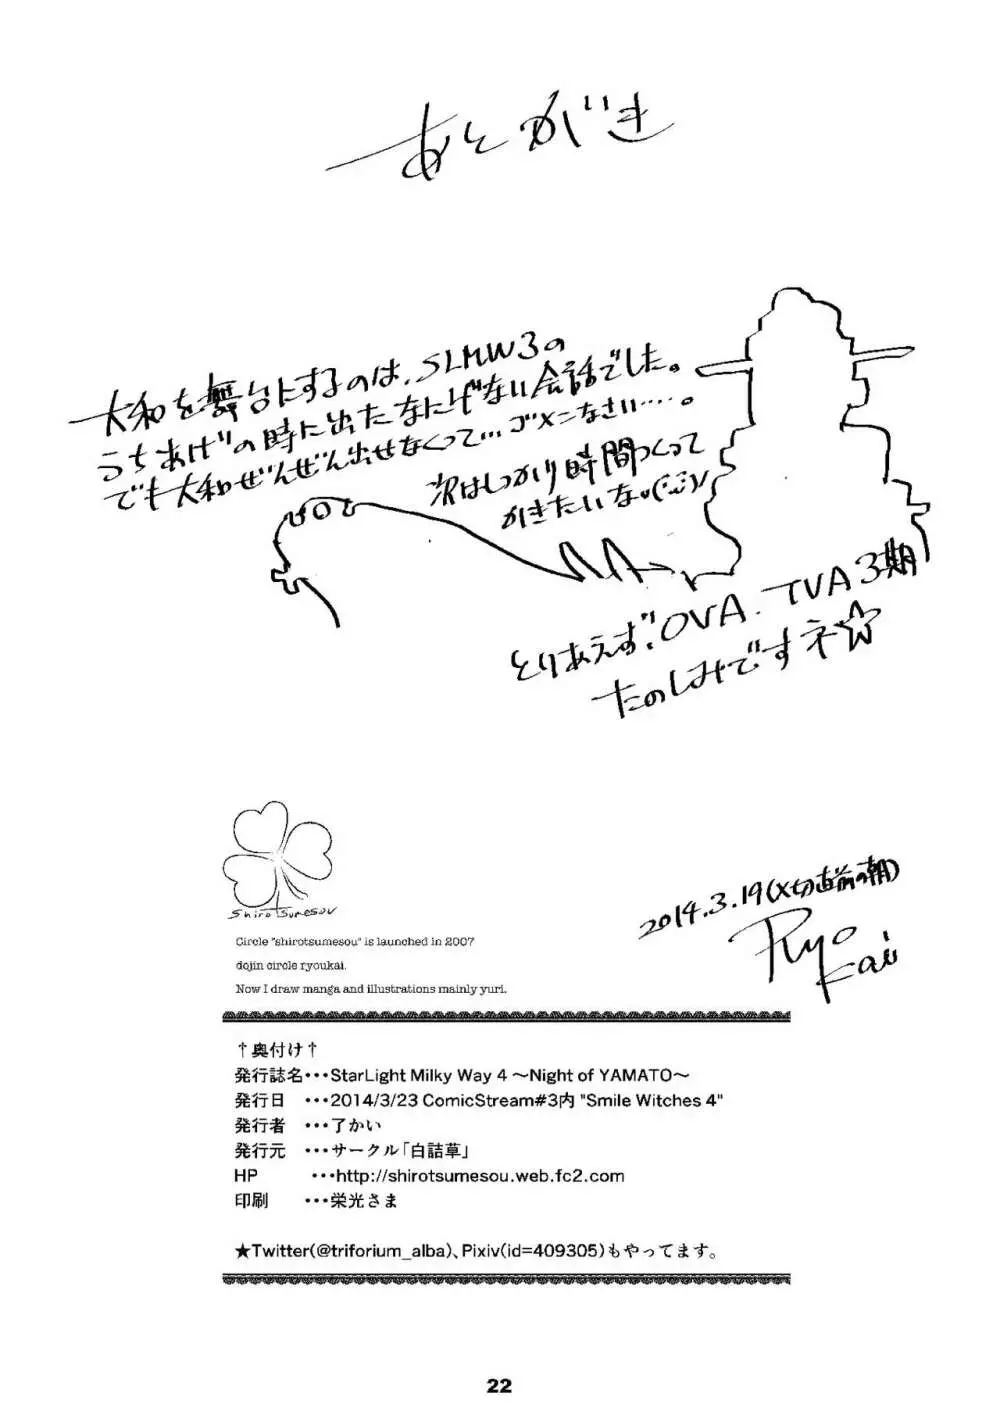 あとがき
大和を舞台にするのは、SLMW3の
うちあげの時に出たなにげない会話でした。
でも大和ぜんぜん出せなくって…ゴメンなさい….。
次はしっかり時間つくって
かきたいな。(;;)/
とりあえず、OVA、TVA3期
たのしみですネ☆
shirotsumesou
2014.3.19(〆切直前の朝)
Ryo
Kai
Circle "shirotsumesou" is launched in 2007
dojin circle ryoukai.
Now I draw manga and illustrations mainly yuri.
↑奥付け↑
発行誌名・・・StarLight Milky Way 4 ～Night of YAMATO～
発行日 ・・・2014/3/23 ComicStream#3内 "Smile Witches 4"
発行者 ・・・了かい
発行元 ・・・サークル「白詰草」
HP ・・・http://shirotsumesou.web.fc2.com
印刷 ・・・栄光さま
★Twitter(@triforium_alba)、Pixiv(id=409305)もやってます。
22